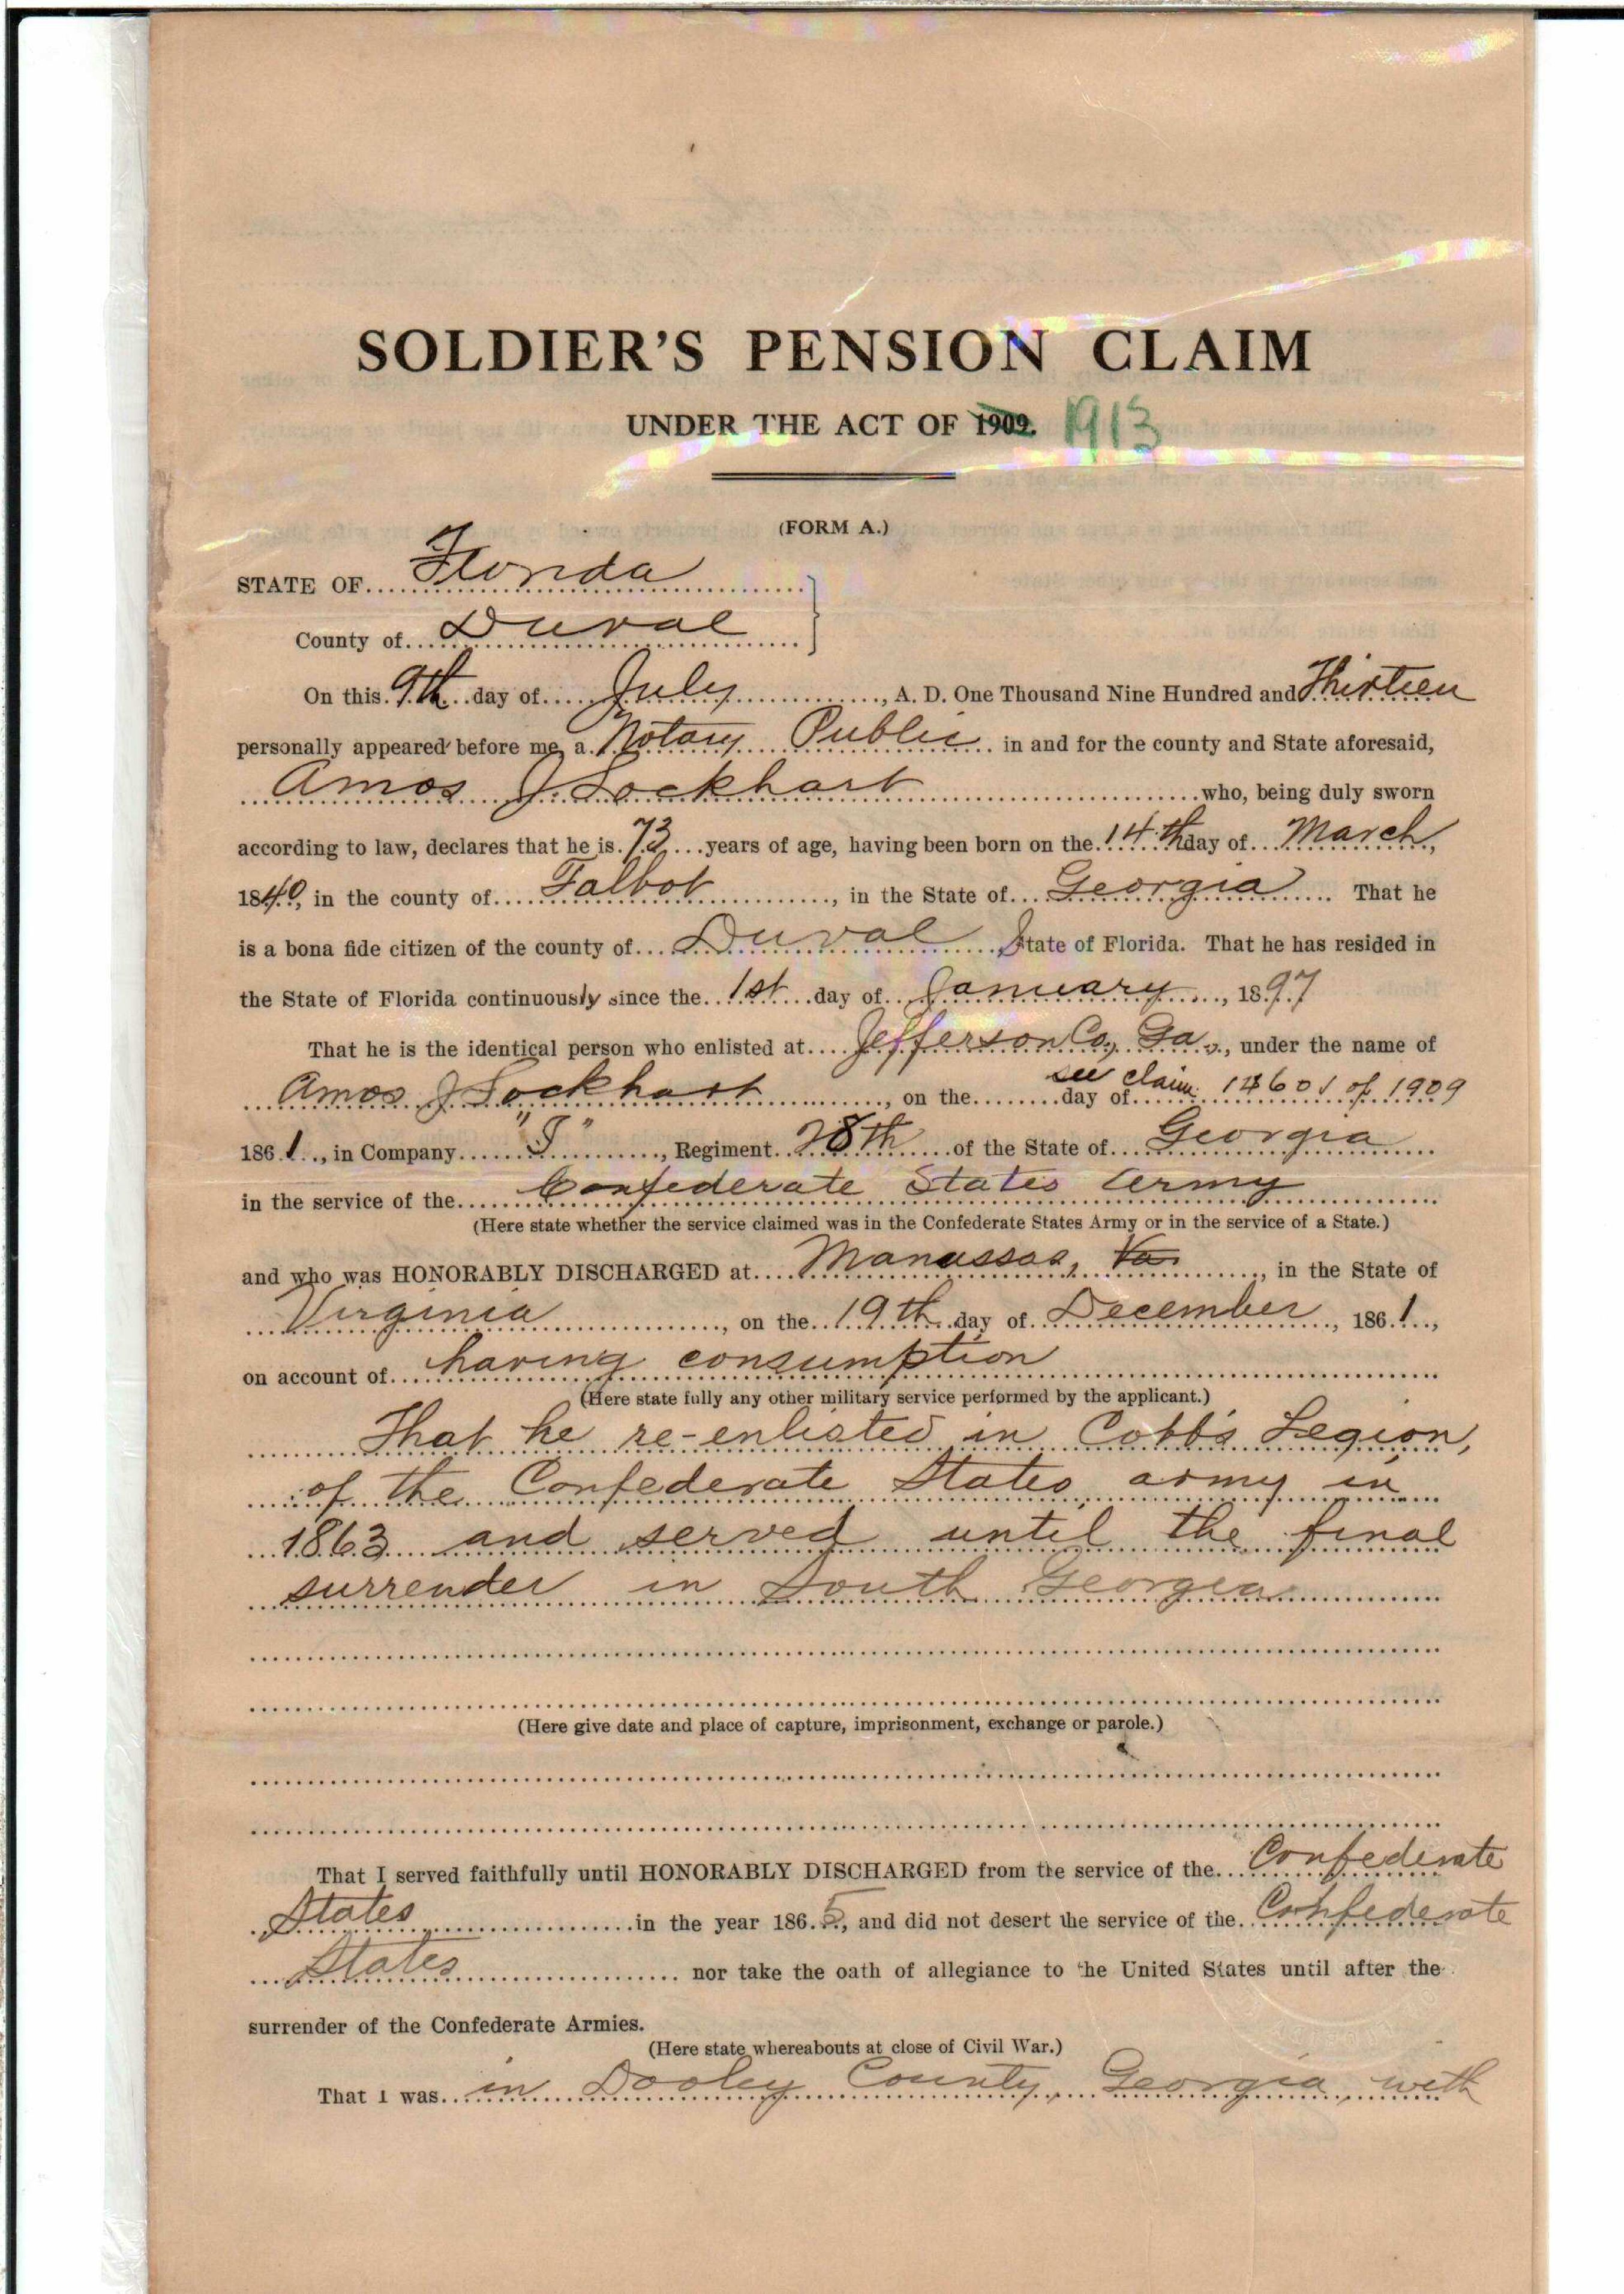 SOLDIER'S PENSION CLAIM
UNDER THE ACT OF 1909. 1913
(FORM A.)
STATE OF Florida
County of Duval
On this 9th day of July, A. D. One Thousand Nine Hundred and Thirteen
personally appeared before me, a Notary Public in and for the county and State aforesaid,
Amos J Lockhart who, being duly sworn
according to law, declares that he is 73 years of age, having been born on the 14th day of March,
1840, in the county of Talbot, in the State of Georgia That he
is a bona fide citizen of the county of Duval State of Florida. That he has resided in
the State of Florida continuously since the 1st day of January, 1897
That he is the identical person who enlisted at Jefferson Co, Ga., under the name of
see claim 14601 of 1909
Amos J Lockhart, on the day of
1861, in Company "I", Regiment 28th of the State of Georgia
in the service of the Confederate States Army
(Here state whether the service claimed was in the Confederate States Army or in the service of a State.)
and who was HONORABLY DISCHARGED at Manassas, Va, in the State of
Virginia, on the 19th day of December, 1861,
on account of having consumption
(Here state fully any other military service performed by the applicant.)
That he re-enlisted in Cobb's Legion,
of the Confederate States army in
1863 and served until the final
surrender in South Georgia
(Here give date and place of capture, imprisonment, exchange or parole.)
That I served faithfully until HONORABLY DISCHARGED from the service of the Confederate
States in the year 1865, and did not desert the service of the Confederate
States nor take the oath of allegiance to the United States until after the
surrender of the Confederate Armies.
(Here state whereabouts at close of Civil War.)
That I was in Dooley County, Georgia, with